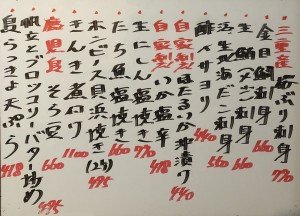 三重産 ぶり刺身
金目鯛刺身
生 鯛刺身 660
刺身 660
生 海だこ刺身
酢〆サヨリ 440
自家製! ほたるいか沖漬り 440
自家製! いか塩辛 418
生にしん 塩焼き 770
たち魚 塩焼き 660
ホンビノス貝浜焼き(2ケ) 495
きんき 煮付 1100
鹿児島 そら豆 660
帆立とブロッコリバター炒め 495
島らっきょ天ぷら 418